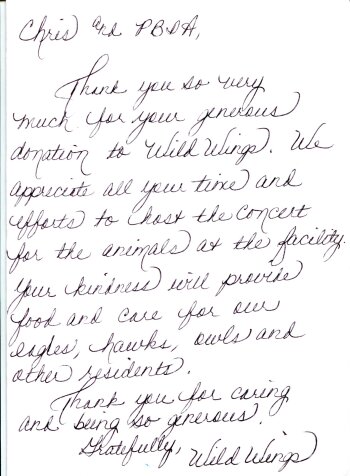 Chris and PBDA,
Thank you so very
much for your generous
donation to Wild Wings. We
appreciate all your time and
efforts to host the concert
for the animals at the facility.
Your kindness will provide
food and care for our
eagles, hawks, owls and
other residents.
Thank you for caring
and being so generous.
Gratefully, Wild Wings